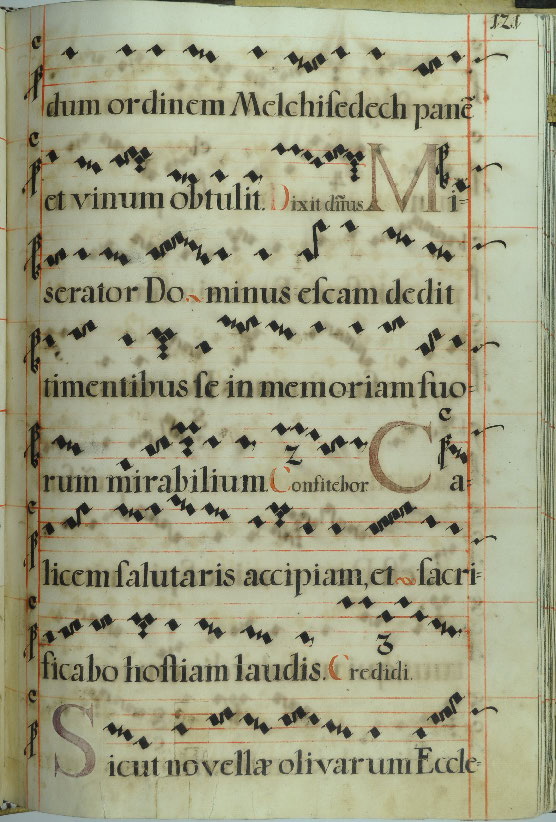 121
dum ordinem Melchiſedech panē
et vinum obtulit. Dixit dñus Mi-
serator Do minus eſcam dedit
timentibus ſe in memoriam ſuo-
rum mirabilium. 2 Confitebor Ca-
licem ſalutaris accipiam, et ſacri-
ficabo hoſtiam laudis. Credidi. 3
Sicut novellæ olivarum Eccle-